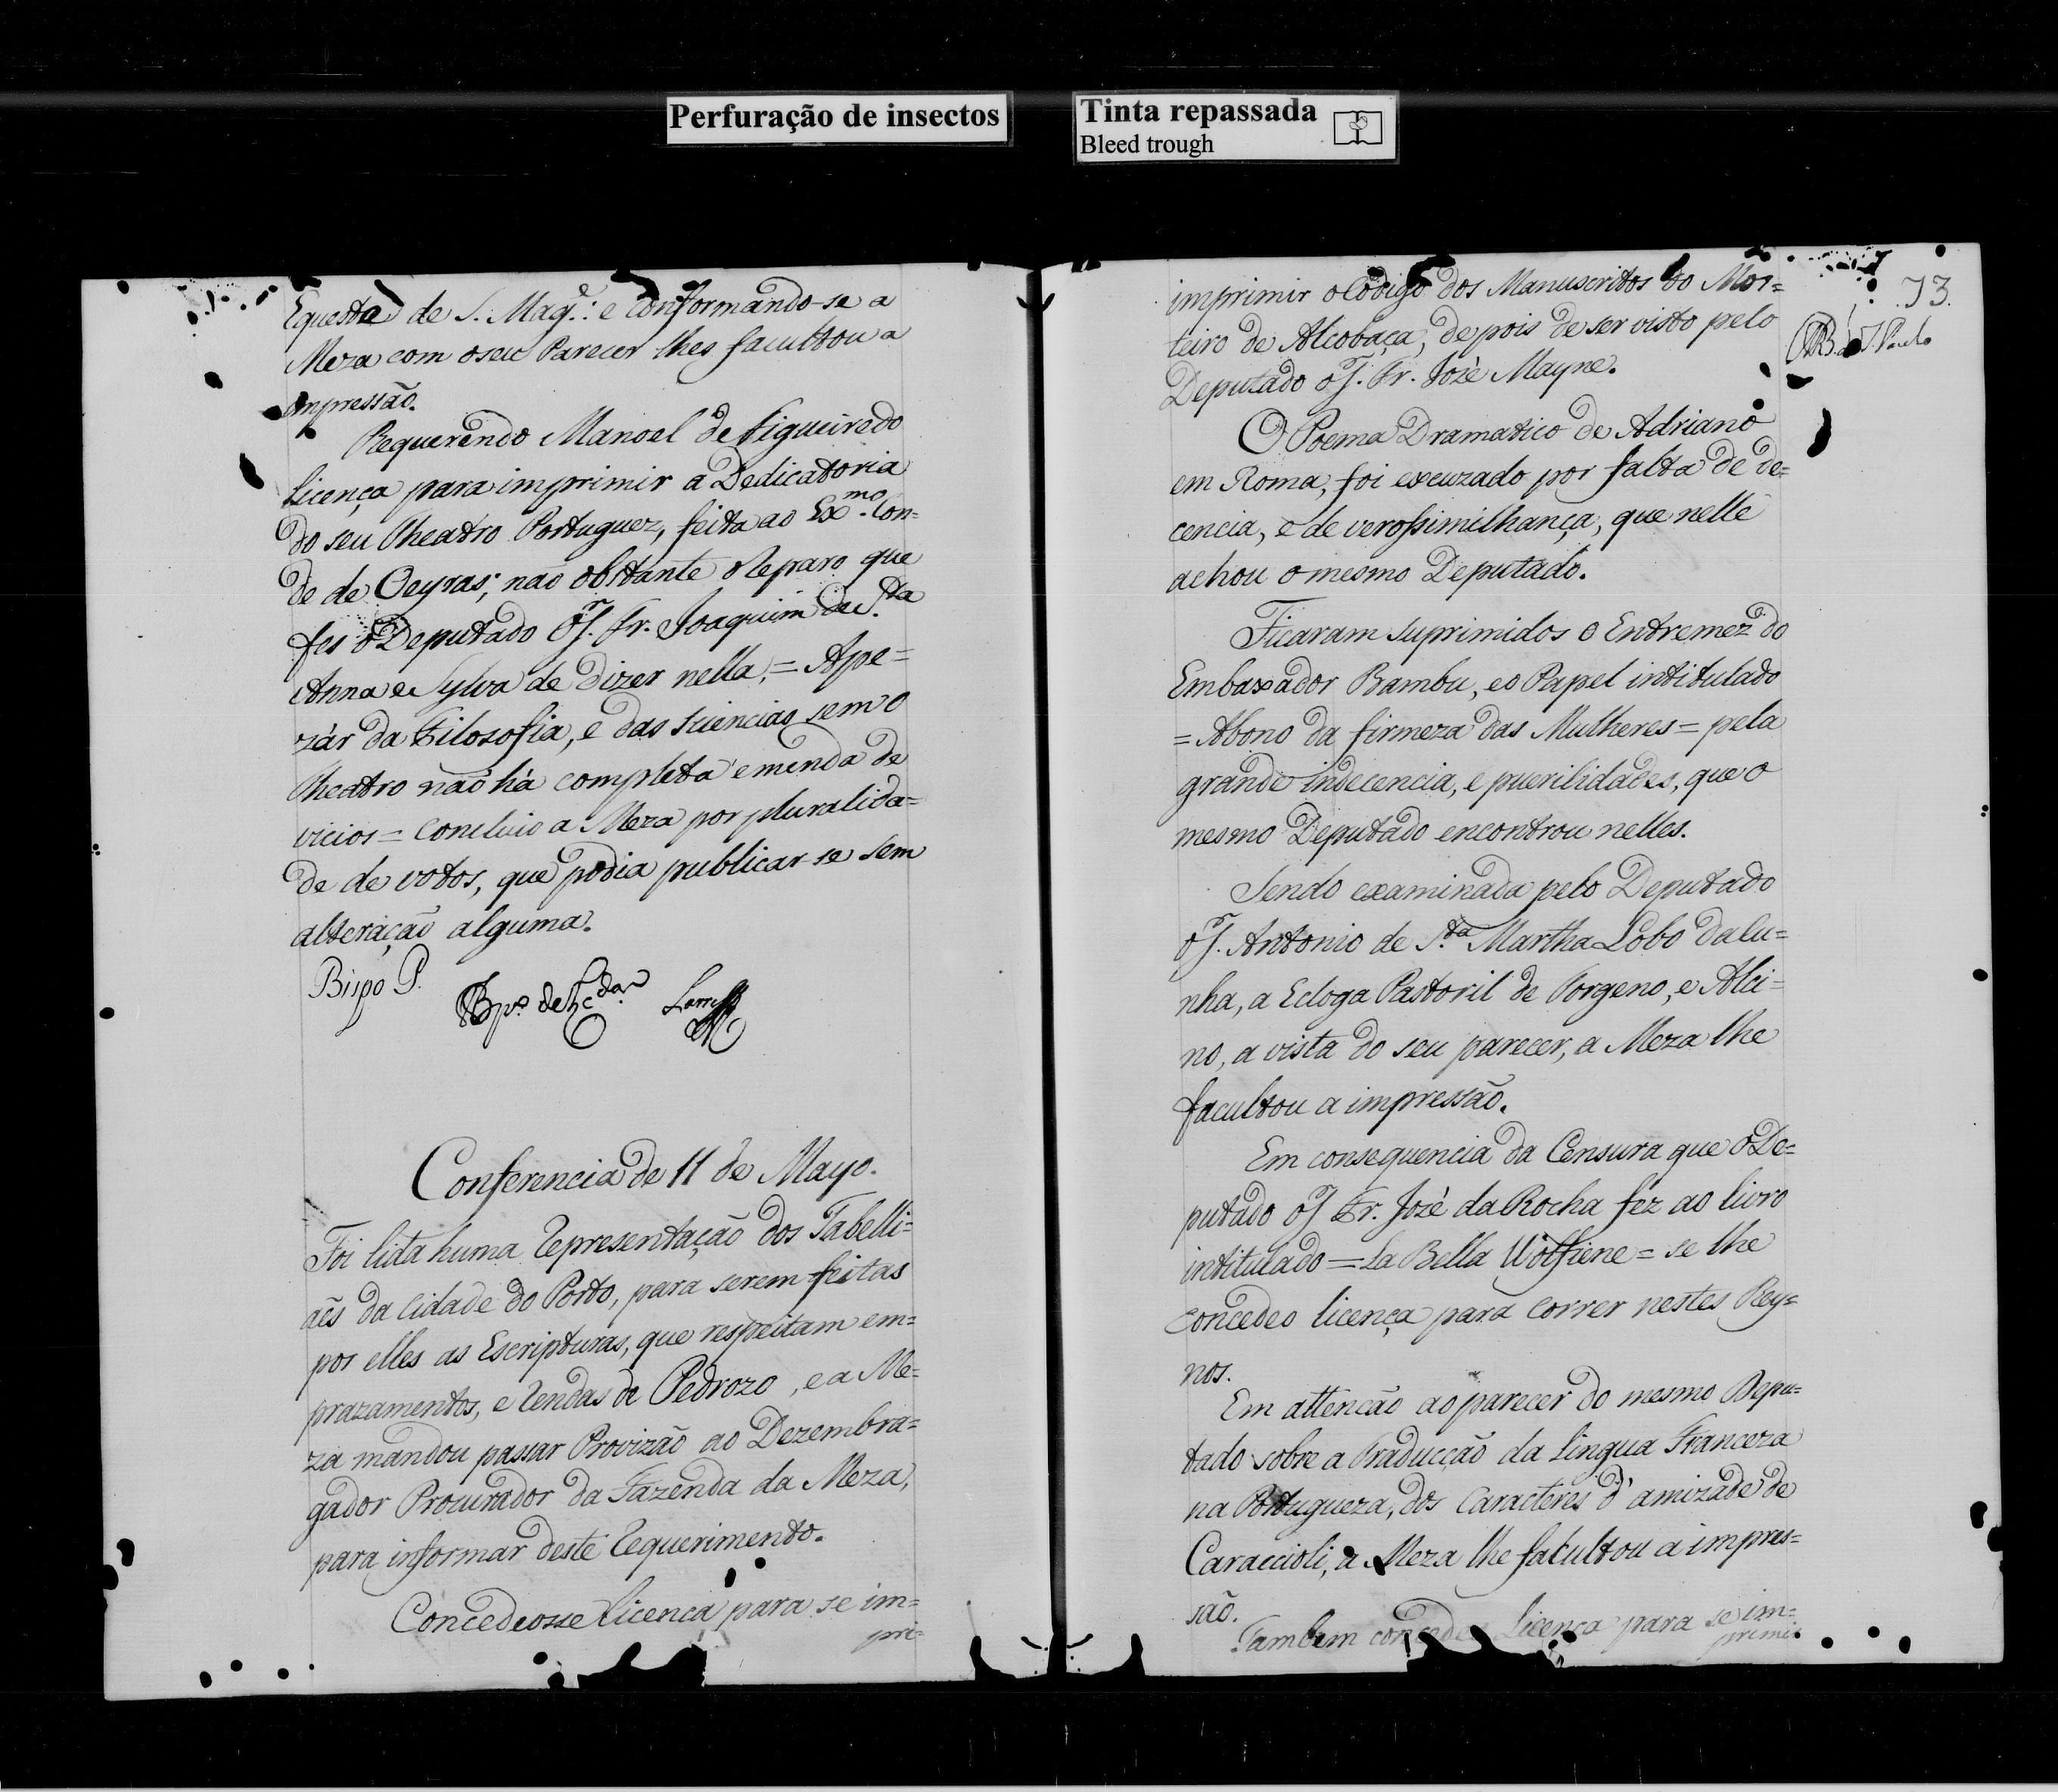 Perfuração de insectos
Tinta repassada
Bleed trough
Equestre de S. Mag.e: e conformando-se a
Meza com o seu Parecer lhes facultou a
impressão.
Requerendo Manoel de Figueiredo
licença para imprimir a Dedicatoria
do seu Theatro Portuguez, feita ao Exmo. Con=
de de Oeyras; não obstante o Reparo que
fes o Deputado Fr. Joaquim de S.ta
Anna e Sylva de dizer nella, = Ape=
zár da Filosofia, e das Sciencias sem o
Theatro não há completa emenda de
vicios = Concluio a Meza por pluralida=
de de votos, que podia publicar-se sem
alteração alguma.
Bispo P.
Conferencia de 11 de Mayo.
Foi lida huma Representação dos Tabelli=
aẽs da Cidade do Porto, para serem feitas
por elles as Escripturas, que respeitam em=
prazamentos, e Rendas de Pedrozo, e a Me=
za mandou passar Provizão ao Dezembra=
gador Procurador da Fazenda da Meza,
para informar deste Requerimento.
Concedeosse licença para se im=
pri=
73.
imprimir o Codigo dos Manuscritos do Mos=
teiro de Alcobaça, depois de ser visto pelo
Deputado Fr. Jozè Mayne.
O Poema Dramatico de Adriano
em Roma, foi excuzado por falta de de=
cencia, e de verossimilhança, que nelle
achou o mesmo Deputado.
Ficaram suprimidos o Entremez do
Embaxador Bambu, e o Papel intitulado
= Abono da firmeza das Mulheres = pela
grande indecencia, e puerilidades, que o
mesmo Deputado encontrou nelles.
Sendo examinada pelo Deputado
Antonio de S.ta Martha Lobo da Cu=
nha, a Ecloga Pastoril de Torgeno, e Alci=
no, a vista do seu parecer, a Meza lhe
facultou a impressão.
Em consequencia da Censura que o De=
putado Fr. Jozè da Rocha fez ao livro
intitulado = La Bella Wolfiene = se lhe
concedeo licença para correr nestes Rey=
nos.
Em attenção ao parecer do mesmo Depu=
tado sobre a Traducção da Lingua Franceza
na Portugueza, dos Caracteres d' amizade de
Caraccioli, a Meza lhe facultou a impres=
são.
Tambem concedeo licença para se im=
primir